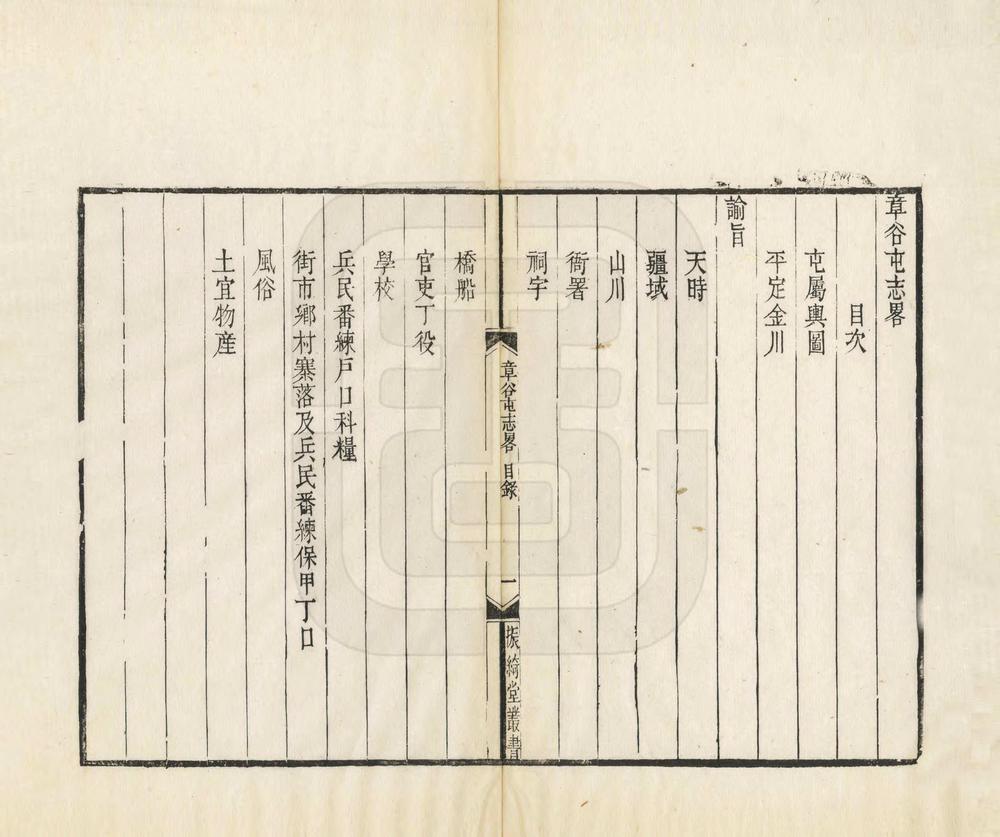 章谷屯志畧
目次
屯屬輿圖
平定金川
諭旨
天時
疆域
山川
衙署
祠宇
章谷屯志畧 目錄
一
振綺堂叢書
橋船
官吏丁役
學校
兵民番練戶口科糧
街市鄉村寨落及兵民番練保甲丁口
風俗
土宜物産